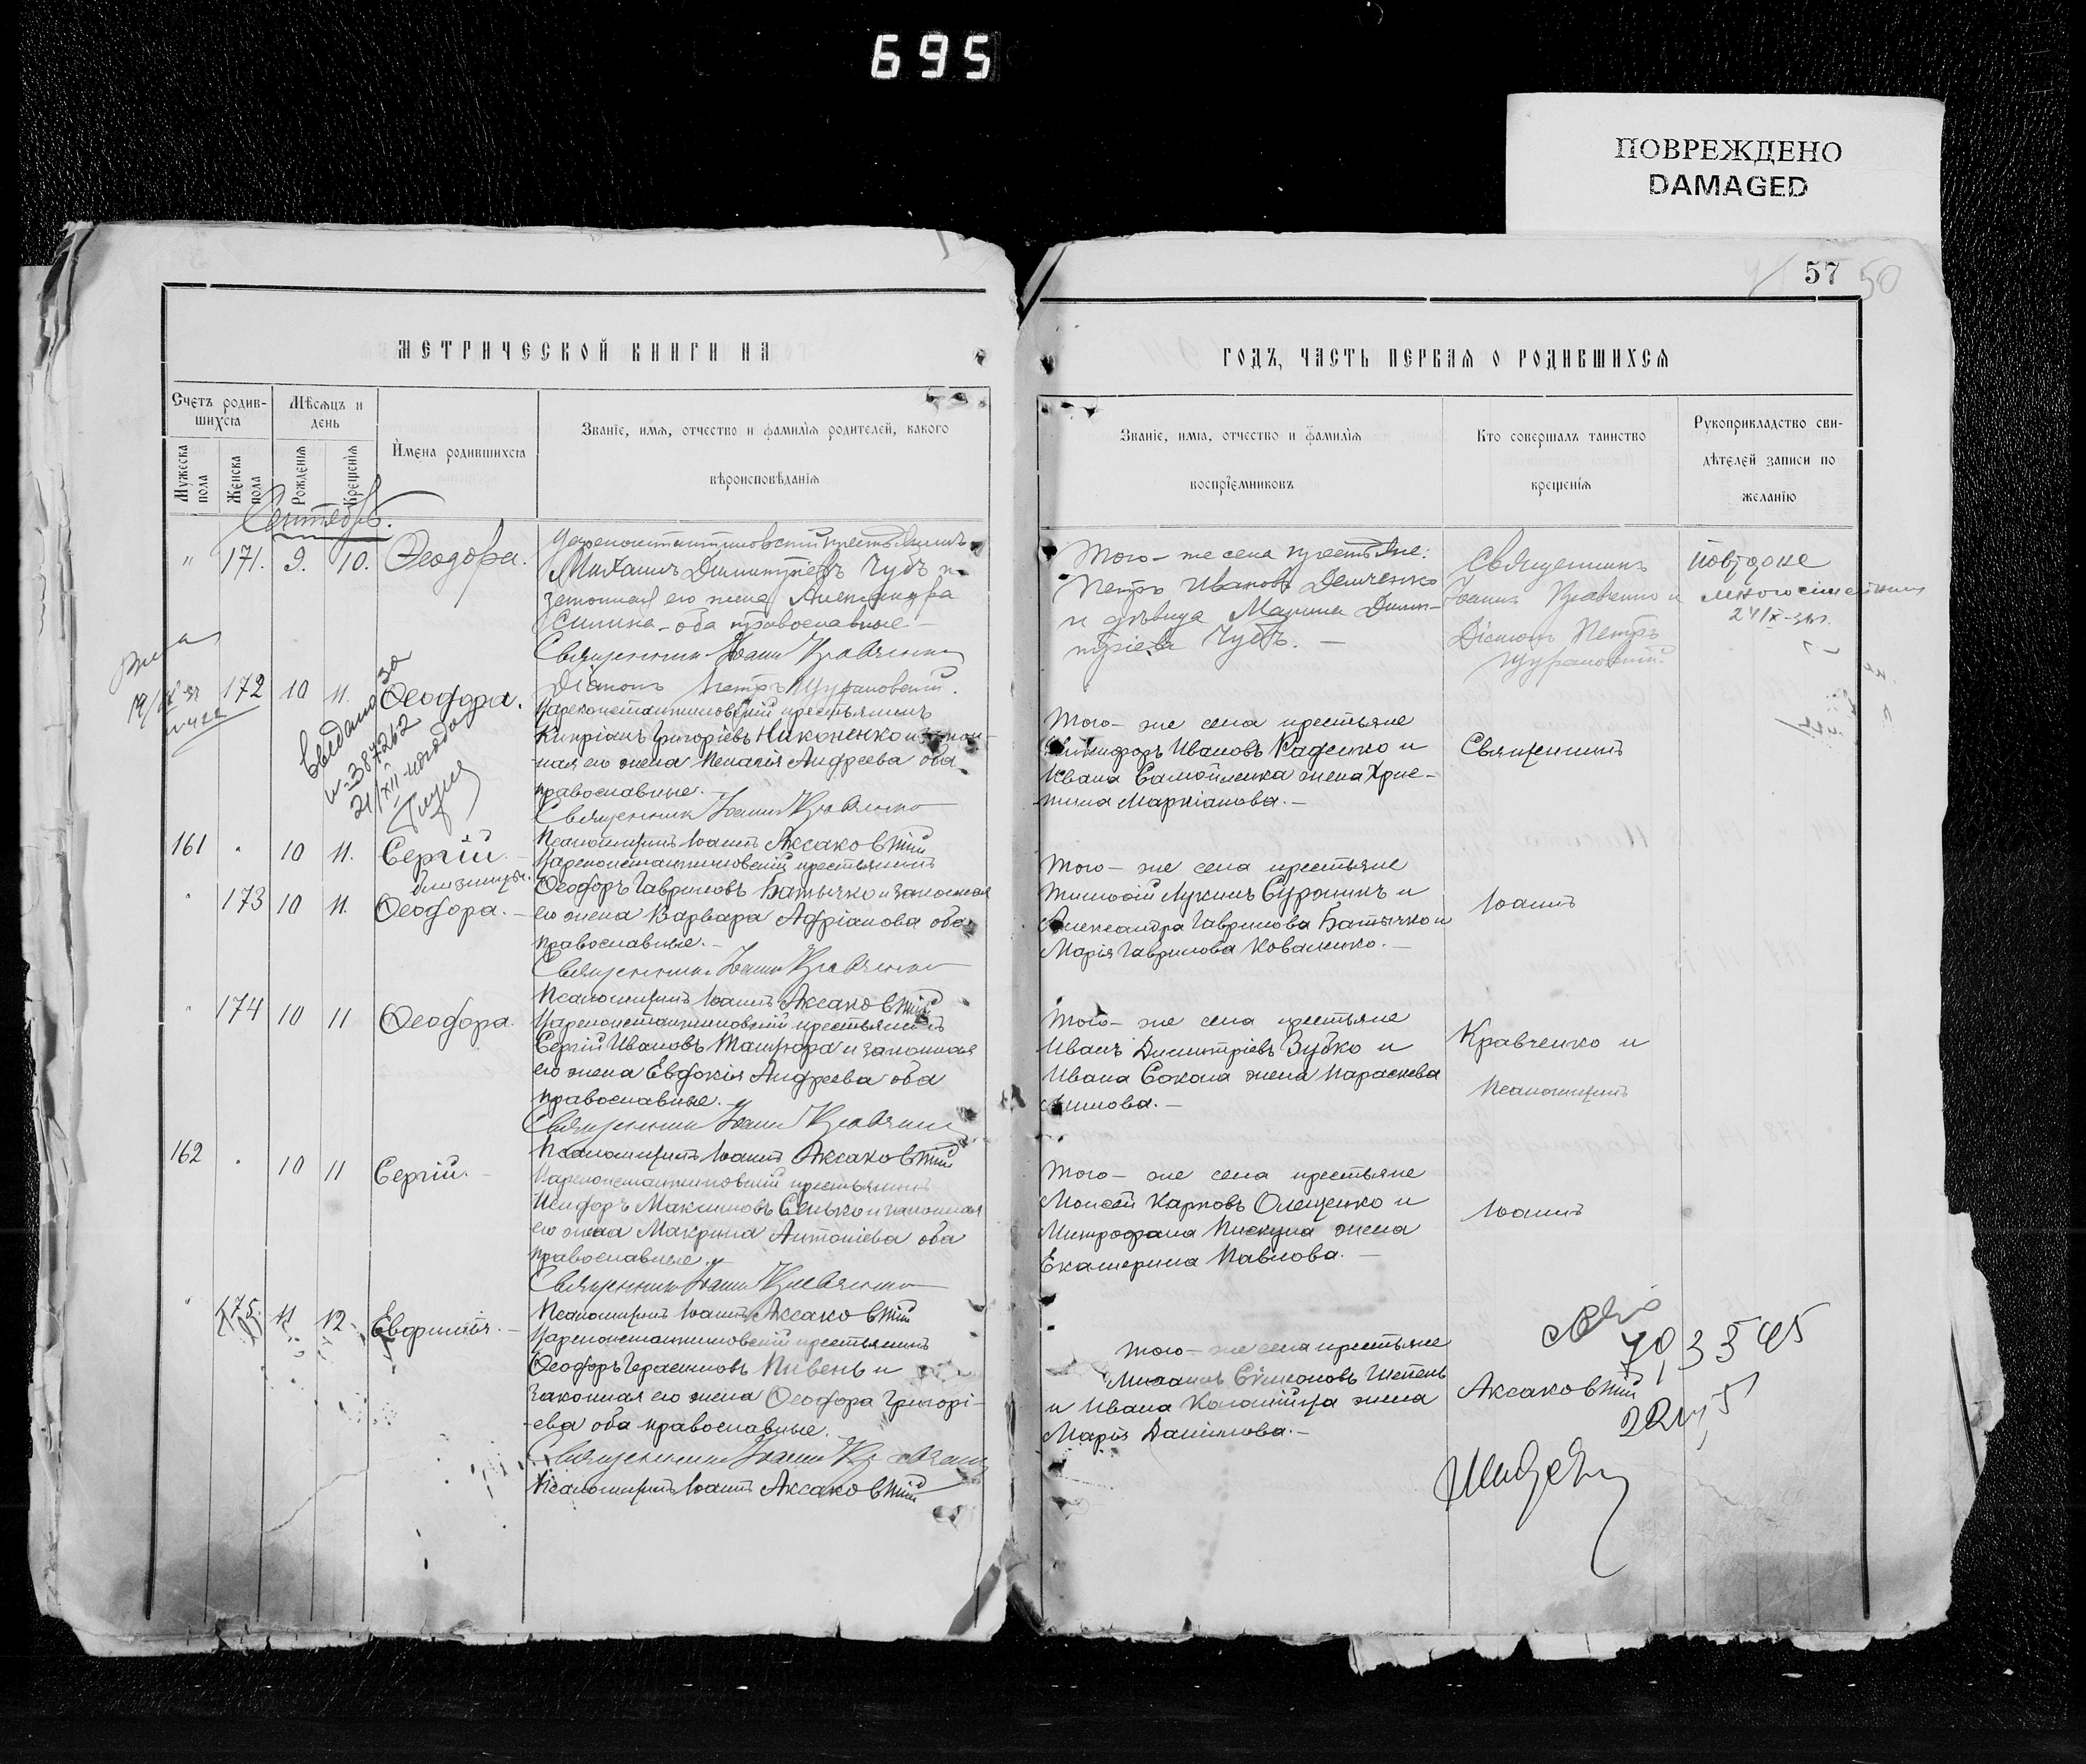 695
ПОВРЕЖДЕНО
DAMAGED
57
50
МЕТРИЧЕСКОЙ КНИГИ НА
ГОДЪ, ЧАСТЬ ПЕРВАЯ О РОДИВШИХСЯ
Счетъ родив-
шихсѧ
Мужеска пола
Женска пола
Мѣсяцъ и
день
Рожденія
Крещенія
Имена родившихсѧ
Званіе, имя, отчество и фамилія родителей, какого
вѣроисповѣданія
Званіе, имя, отчество и фамилія
воспріемниковъ
Кто совершалъ таинство
крещенія
Рукоприкладство сви-
дѣтелей записи по
желанію
Сентябрь.
" 171. 9. 10. Ѳеодора.
Цареконстантиновскій крестьянинъ
Михаилъ Димитріевъ Чубъ и
законная его жена Александра
оба православные
Священникъ Іоаннъ Кравченко
Діаконъ Петръ
Того-же села крестьяне:
Петръ Ивановъ Демченко
и дѣвица Марина Дими-
тріева Чубъ. —
Священникъ
Іоаннъ Кравченко и
Діаконъ Петръ
172 10 11. Ѳеодора.
№ 387262
Цареконстантиновскій крестьянинъ
Кипріанъ Григорьевъ Никоненко и закон-
ная его жена Пелагія Андреева оба
православные.
Священникъ Іоаннъ Кравченко
Псаломщикъ Іоаннъ Аксаковскій
Того-же села крестьяне
Никифоръ Ивановъ Раденко и
Ивана Самойленка жена Хрис-
тина Маркіанова. —
Священникъ
161 " 10 11. Сергій
близнецы.
" 173 10 11. Ѳеодора. —
Цареконстантиновскій крестьянинъ
Ѳеодоръ Гавриловъ Батычко и законная
его жена Варвара Адріанова оба
православные. —
Священникъ Іоаннъ Кравченко
Псаломщикъ Іоаннъ Аксаковскій
Того-же села крестьяне
Тимоѳій Лукинъ и
Александра Гаврилова Батычко и
Марія Гаврилова Коваленко. —
Іоаннъ
" 174 10 11 Ѳеодора.
Цареконстантиновскій крестьянинъ
Сергій Ивановъ и законная
его жена Евдокія Андреева оба
православные. —
Священникъ Іоаннъ Кравченко
Псаломщикъ Іоаннъ Аксаковскій
Того-же села крестьяне
Иванъ Димитріевъ Зубко и
Ивана Сокола жена Параскева
Кравченко и
Псаломщикъ
162 " 10 11 Сергій. —
Цареконстантиновскій крестьянинъ
Исидоръ Максимовъ и законная
его жена Макрина Антоніева оба
православные.
Священникъ Іоаннъ Кравченко
Псаломщикъ Іоаннъ Аксаковскій
Того-же села крестьяне
Моисей Карповъ Олещенко и
Митрофана Пискуна жена
Екатерина Павлова. —
Іоаннъ
" 175. 11 12. Евфимія. —
Цареконстантиновскій крестьянинъ
Ѳеодоръ Герасимовъ Пивень и
законная его жена Ѳеодора Григорі-
ева оба православные.
Священникъ Іоаннъ Кравченко
Псаломщикъ Іоаннъ Аксаковскій
Того-же села крестьяне
Михаилъ Сѷмеоновъ Шепель
и Ивана жена
Марія Данилова. —
Аксаковскій